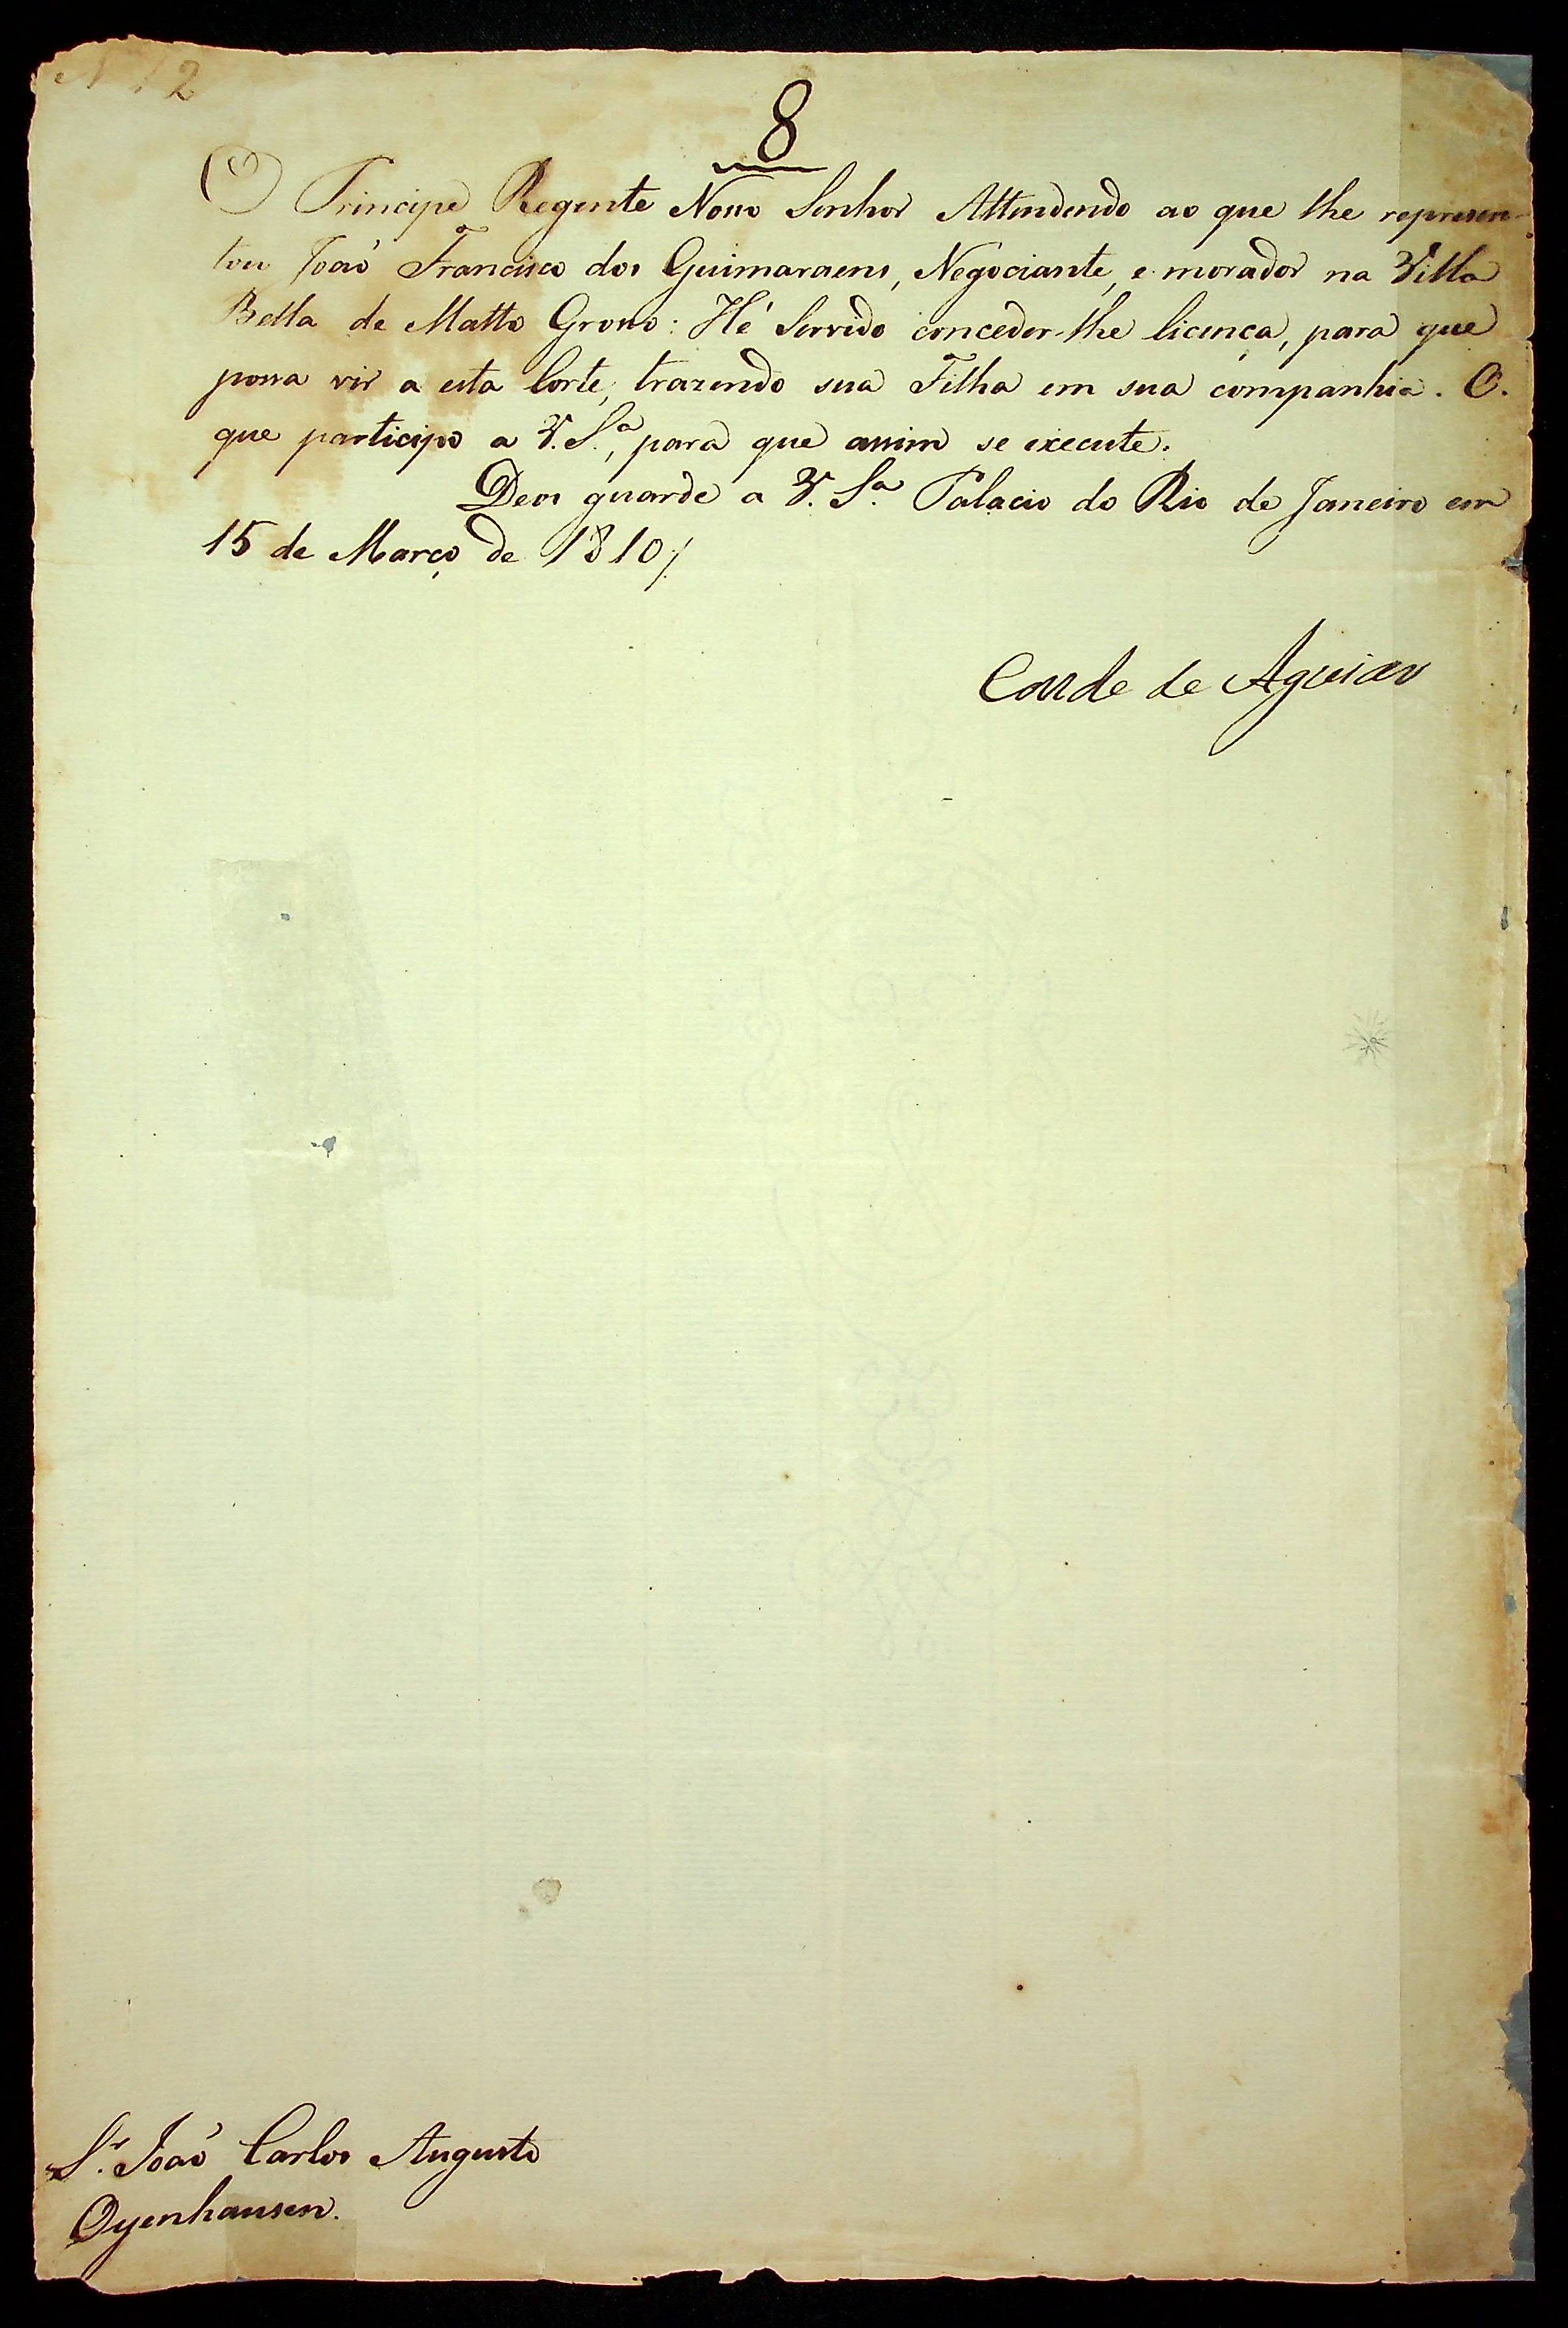 N 12
8
O Principe Regente Nosso Senhor Attendendo ao que lhe represen-
tou Joaõ Francisco dos Guimaraens, Negociante, e morador na Villa
Bella de Matto Grosso: Hé Servido conceder-lhe licença, para que
possa vir a esta Corte, trazendo sua Filha em sua companhia. O.
que participo a V. S.ª, para que assim se execute.
Deos guarde a V. S.ª Palacio do Rio de Janeiro em
15 de Março de 1810 /.
Conde de Aguiar
S.r Joaõ Carlos Augusto
Oyenhausen.